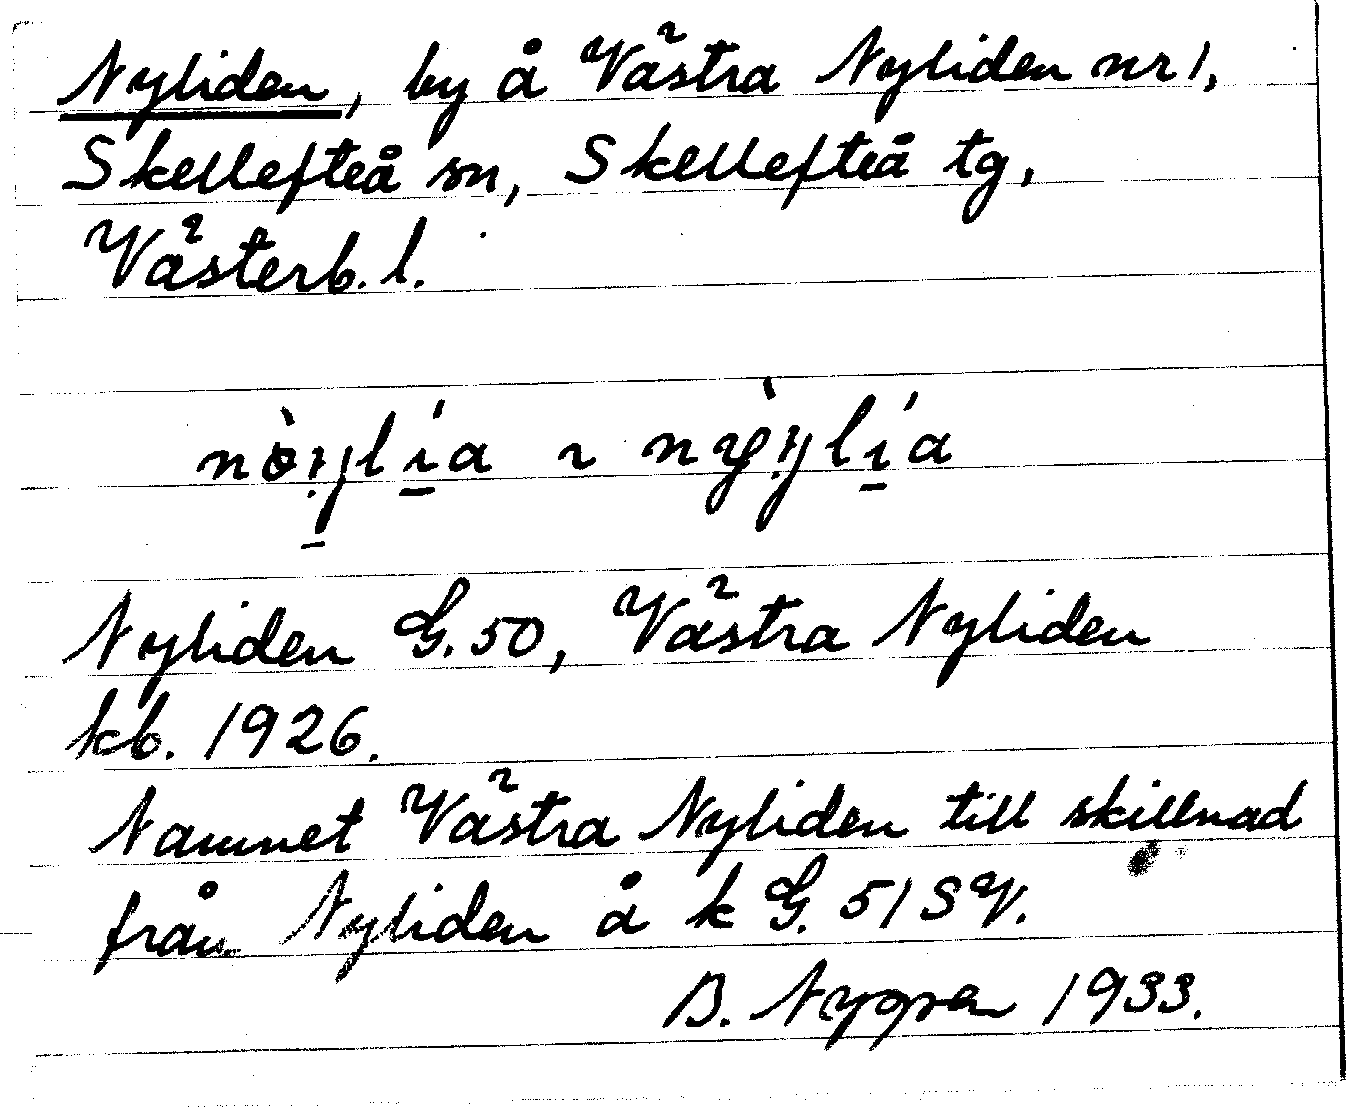 Nyliden, by å Västra Nyliden nr 1,
Skellefteå sn, Skellefteå tg,
Västerb. l.
Nyliden G. 50, Västra Nyliden
kb. 1926.
Namnet Västra Nyliden till skillnad
från Nyliden å k G. 51 SV.
B. Nygren 1933.